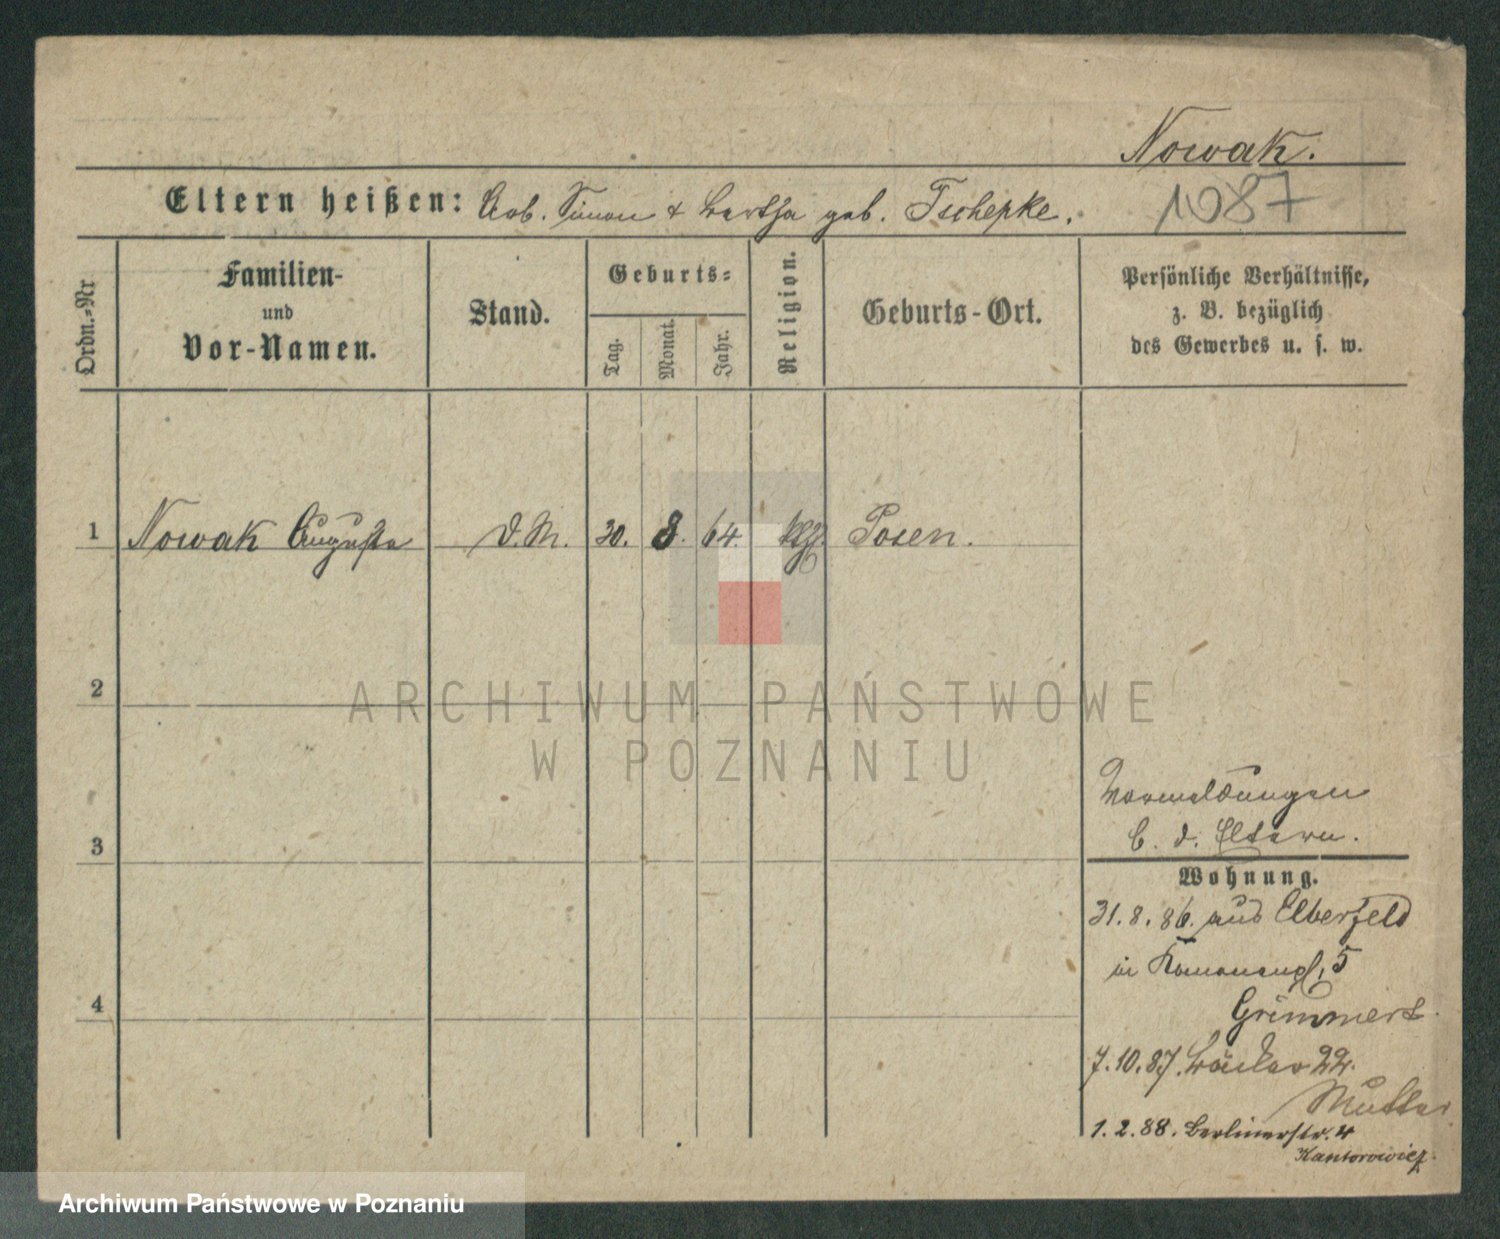 Nowak.
1087
Eltern heißen: Arb. Simon + Bertha geb. Tschepke.
Ordn.-Nr
Familien-
und
Vor-Namen.
Stand.
Geburts-
Tag.
Monat.
Jahr.
Religion.
Geburts-Ort.
Persönliche Verhältnisse,
z. B. bezüglich
des Gewerbes u. s. w.
1 Nowak Auguste D.M. 30. 8. 64. Posen.
2
ARCHIWUM PAŃSTWOWE
W POZNANIU
Vormeldungen
b. d. Eltern.
3
Wohnung.
31. 8. 86. aus Elberfeld
in 5
4
Grimmert.
7. 10. 87. Bäcker 22.
Mutter
1. 2. 88. Berlinerstr. 4
Kantorowicz.
Archiwum Państwowe w Poznaniu